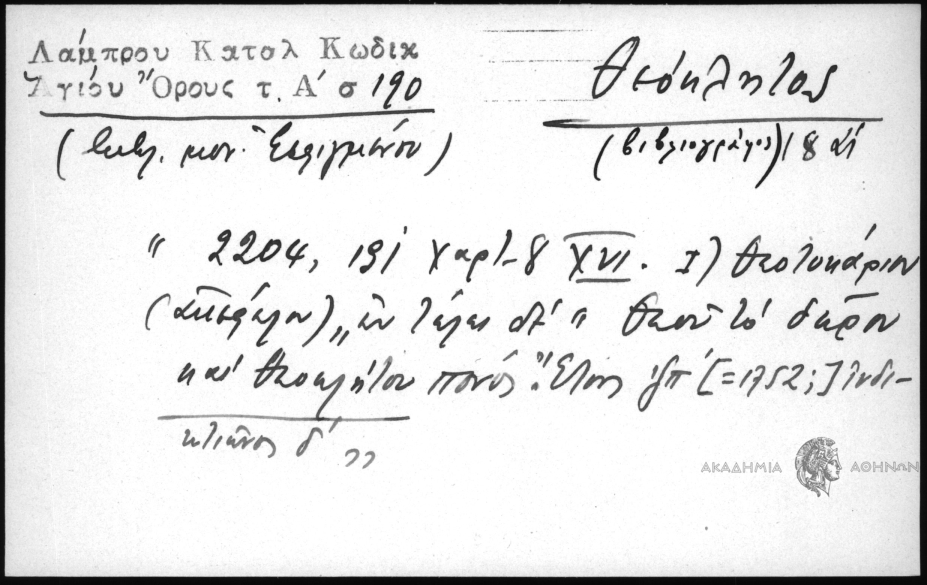 Λάμπρου Καταλ Κωδικ
Ἁγίου Ὄρους τ. Α' σ 190
(βιβλ. μον. Ἐσφιγμένου)
Θεόκλητος
(βιβλιογράφος)
" 2204, 191 χαρτ. 8 XVI. I) Θεοτοκάριον
(ἀκέφαλον) „ ἐν τέλει " Θεοῦ τό δῶρον
καί Θεοκλήτου πόνος. Ἔτους [=1752;] Ἰνδι-
κτιῶνος δ' „
ΑΚΑΔΗΜΙΑ ΑΘΗΝΩΝ